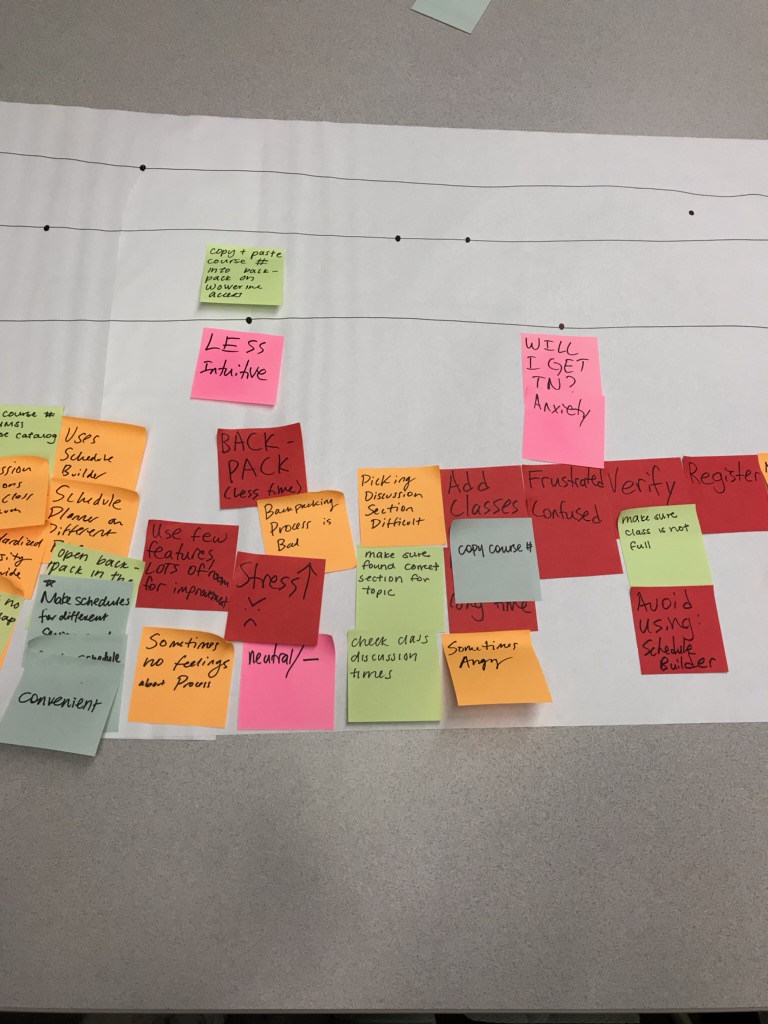 copy + paste
course #
into back-
pack on
wolverine
access
LESS
Intuitive
WILL
I GET
IN?
Anxiety
course #
catalog
Uses
Schedule
Builder
Schedule
Planner on
Different
open back-
pack in the
Make schedules
for different
schedule
convenient
no
BACK-
PACK
(less time)
Backpacking
Process is
Bad
Use few
features,
Lots of room
for improvement
Stress↑
Sometimes
no feelings
about Process
neutral/—
Picking
Discussion
Section
Difficult
make sure
found correct
section for
topic
check class
discussion
times
Add
Classes
copy course #
long time
Sometimes
Angry
Frustrated
Confused
Verify
make sure
class is not
full
Avoid
using:
Schedule
Builder
Register